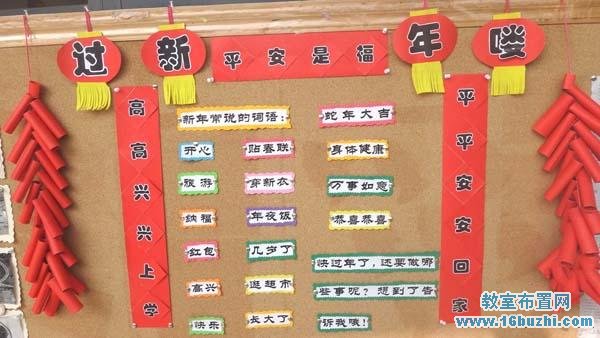 过新年喽
平安是福
高高兴兴上学
平平安安回家
新年常说的词语：
开心
旅游
纳福
红包
高兴
快乐
贴春联
穿新衣
年夜饭
几岁了
逛超市
长大了
蛇年大吉
身体健康
万事如意
恭喜恭喜
快过年了，还要做哪
些事呢？想到了告
诉我哦！
教室布置网
www.16buzhi.com